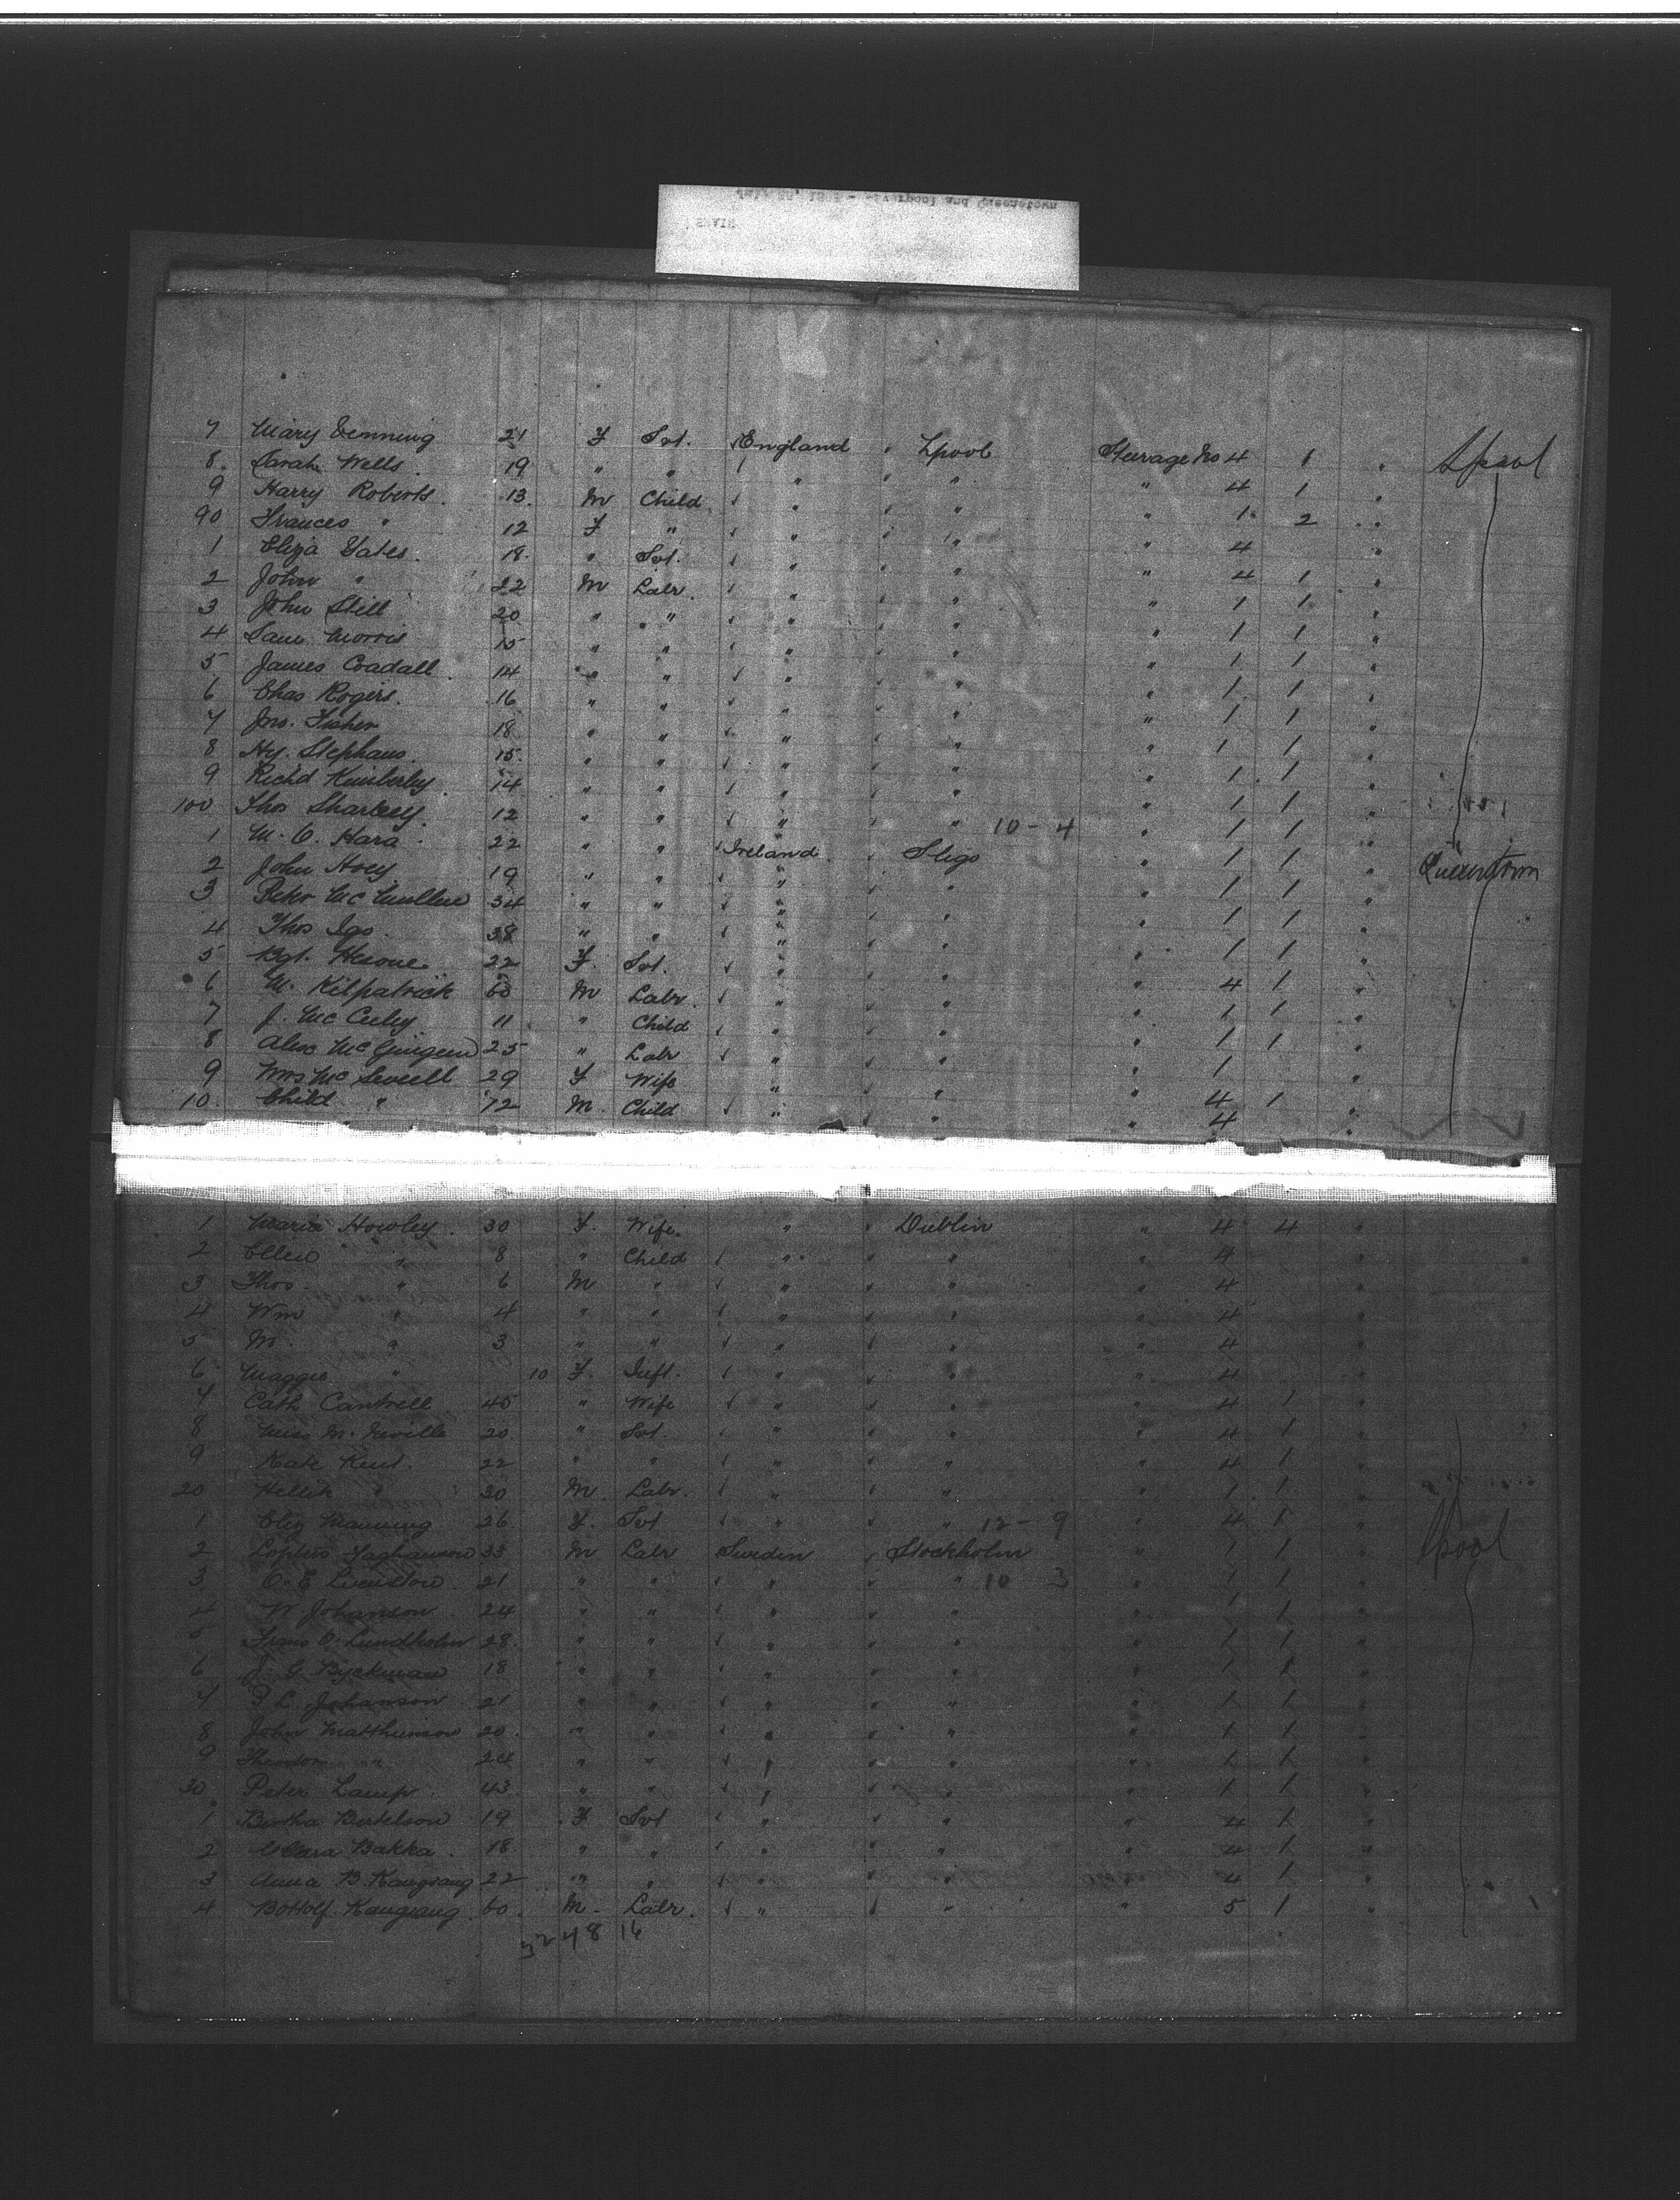 7 Mary Denning 21 F Svt. England " Lpool Steerage No 4 1 " Lpool
8 Sarah Wells 19 " " " " " 4 1 "
9 Harry Roberts 13 M Child " " " 1 2 "
90 Frances " 12 F " " " " 4 "
1 Eliza Yates 18 " Svt. " " " 4 1 "
2 John " 22 M Labr. " " " 1 1 "
3 John Still 20 " " " " " 1 1 "
4 Sam Morris 15 " " " " " 1 1 "
5 James Coadall 14 " " " " " 1 1 "
6 Chas Rogers 16 " " " " " 1 1 "
7 Jno. Fisher 18 " " " " " 1 1 "
8 Hy. Stephans 15 " " " " " 1 1 "
9 Richd Kimberley 14 " " " " " 1 1 "
100 Thos Sharkey 12 " " " " 10-4 " 1 1 "
1 M. O. Hara 22 " " Ireland Sligo " 1 1 " Queenstown
2 John Hoey 19 " " " " " 1 1 "
3 Peter Mc 34 " " " " " 1 1 "
4 Thos Igo 38 " " " " " 1 1 "
5 Bgt. 22 F. Svt. " " " 4 1 "
6 M. Kilpatrick 60 M Labr. " " " 1 1 "
7 J. Mc 11 " Child " " " 1 1 "
8 Alex Mc 25 " Labr " " " 1
9 Mrs Mc 29 F Wife " " " 4 1 "
10. Child " 12 M. Child " " " 4 "
1 Maria Howley 30 F. Wife. " Dublin " 4 4 "
2 Ellen " 8 " Child " " 4
3 Thos. " 6 M " " " 4
4 Wm " 4 " " " " 4
5 M. " 3 " " " " " 4
6 Maggie " 10 F. Inft. " " " 4
7 Cath Cantrell 45 " Wife " " " 4 1 "
8 Miss M. Neville 20 " Svt. " " " 4 1 "
9 Kate Kent. 22 " " " " " 4 1 "
20 " 30 M. Labr. " " " 1 1 "
1 Eliz Manning 26 F. Svt " " 12-9 " 4 1 " Lpool
2 33 M Labr Sweden Stockholm " 1 1 "
3 21 " " " " 10 3 " 1 1 "
4 W Johanson 24 " " " " " 1 1 "
5 Frans O. Lundholm 28. " " " " " 1 1 "
6 J. G. Byckman 18 " " " " " 1 1 "
7 P. L. Johanson 21 " " " " " 1 1 "
8 John 20 " " " " " 1 1 "
9 " 24 " " " " " 1 1 "
30 Peter Lamp 43 " " " " " 1 1 "
1 Bertha Bertelson 19 F Svt " " " 4 1 "
2 Clara Bakka 18 " " " " " 4 1 "
3 Anna B. 22 " " " " " 4 1 "
4 60 M. Labr. " " " 5 1 "